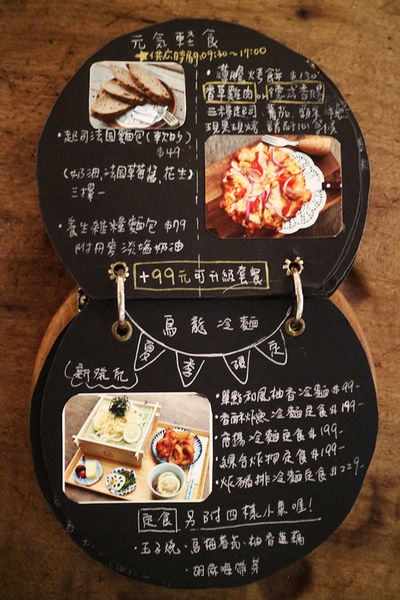 元気軽食
★供應時段09:30~17:00
・薄脆烤餅 $130
香草雞肉 or 德式香腸
三種起司、蕃茄、
現桿現烤
・起司法國麵包(軟的)
$49
(奶油、法國草莓醬、花生)
三擇一
・養生雜糧麵包 $79
附丹麥淡鹽奶油
+99元可升級套餐
烏龍冷麵
夏季限定
(新發売)
・單點和風柚香冷麵 $99-
・香酥炸魚冷麵定食 $199-
・唐揚冷麵定食 $199-
・綜合炸物定食 $199-
・炸豬排冷麵定食 $229-
定食 另附四樣小菜喔!
・玉子燒、烏梅番茄、柚香蓮藕
胡麻海帶芽